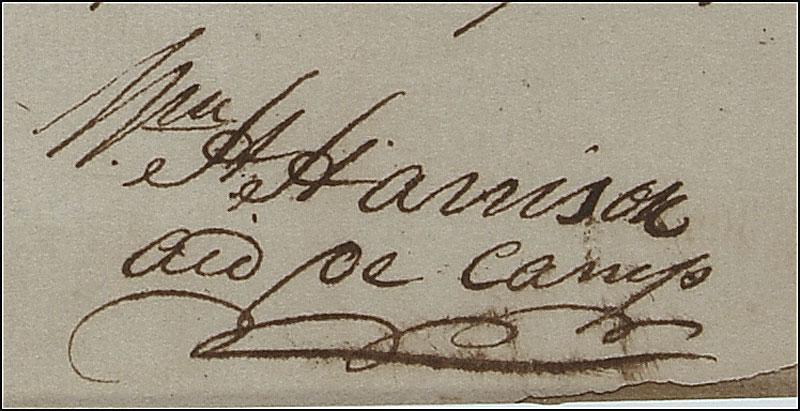 Wm H Harrison
aid de camp